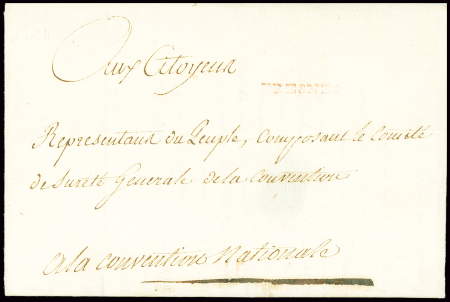 Aux Citoyens
FRESNES
Representans du Peuple, composant le Comité
de Sureté Generale de la Convention
a la convention Nationale